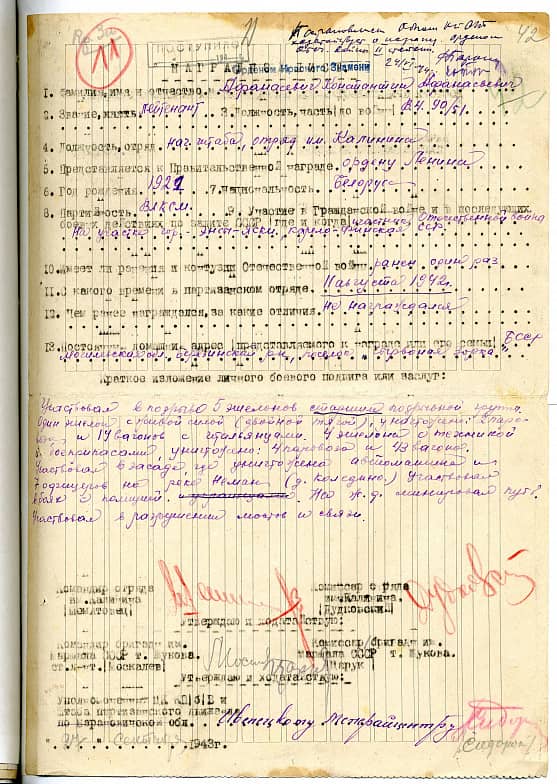 11
ПОСТУПИЛО
42
Постановлением
II степени
НАГРАДНОЙ ЛИСТ
Орденом Красного Знамени
1. Фамилия, имя и отчество. Афанасевич Константин Афанасьевич
2. Звание, часть лейтенант 3. Должность, часть до войны В.Ч. 90/51.
4. Должность, отряд нач. штаба, отряд им. Калинина
5. Представляется к Правительственной награде. ордену Ленина
6. Год рождения. 1921 7. Национальность. Белорус
8. Партийность. ВЛКСМ. 9. Участие в Гражданской войне и в последующих
боевых действиях по защите СССР где и когда участник Отечественной войны
на участке карело-финская ССР.
10. Имеет ли ранения и контузии Отечественной войны ранен один раз
11. С какого времени в партизанском отряде. 11 августа 1942г.
12. Чем ранее награждался, за какие отличия. Не награждался
13. Постоянный домашний адрес представляемого к награде или его семьи БССР
Могилевская обл. Березинский рн, поселок "Чырвоная зорка"
Краткое изложение личного боевого подвига или заслуг:
Участвовал в подрыве 5 эшелонов старшим подрывной группы.
Один эшелон с живой силой (двойной тягой), уничтожено: 2 паро-
воза и 14 вагонов с итальянцами. 4 эшелона с техникой
и боеприпасами, уничтожено: 4 паровоза и 43 вагона.
Участвовал в засаде, где уничтожена автомашина и
на реке Неман (д. Колядино.) Участвовал
в боях с полицией. На ж.д. минировал путь.
Участвовал в разрушении мостов и связи.
Командир отряда
им. Калинина
Комиссар отряда
им. Калинина
/Дудковский/
Утверждаю и ходатайствую:
Командир бригады им.
маршала СССР т. Жукова.
ст. л-т. /Москалев/
Комиссар бригады им.
маршала СССР т. Жукова.
Утверждаю и ходатайствую:
Уполномоченный ЦК КП/б/Б и
штаба партизанского движения
по Барановичской обл.
сентября 1943г.
(Сидорок)